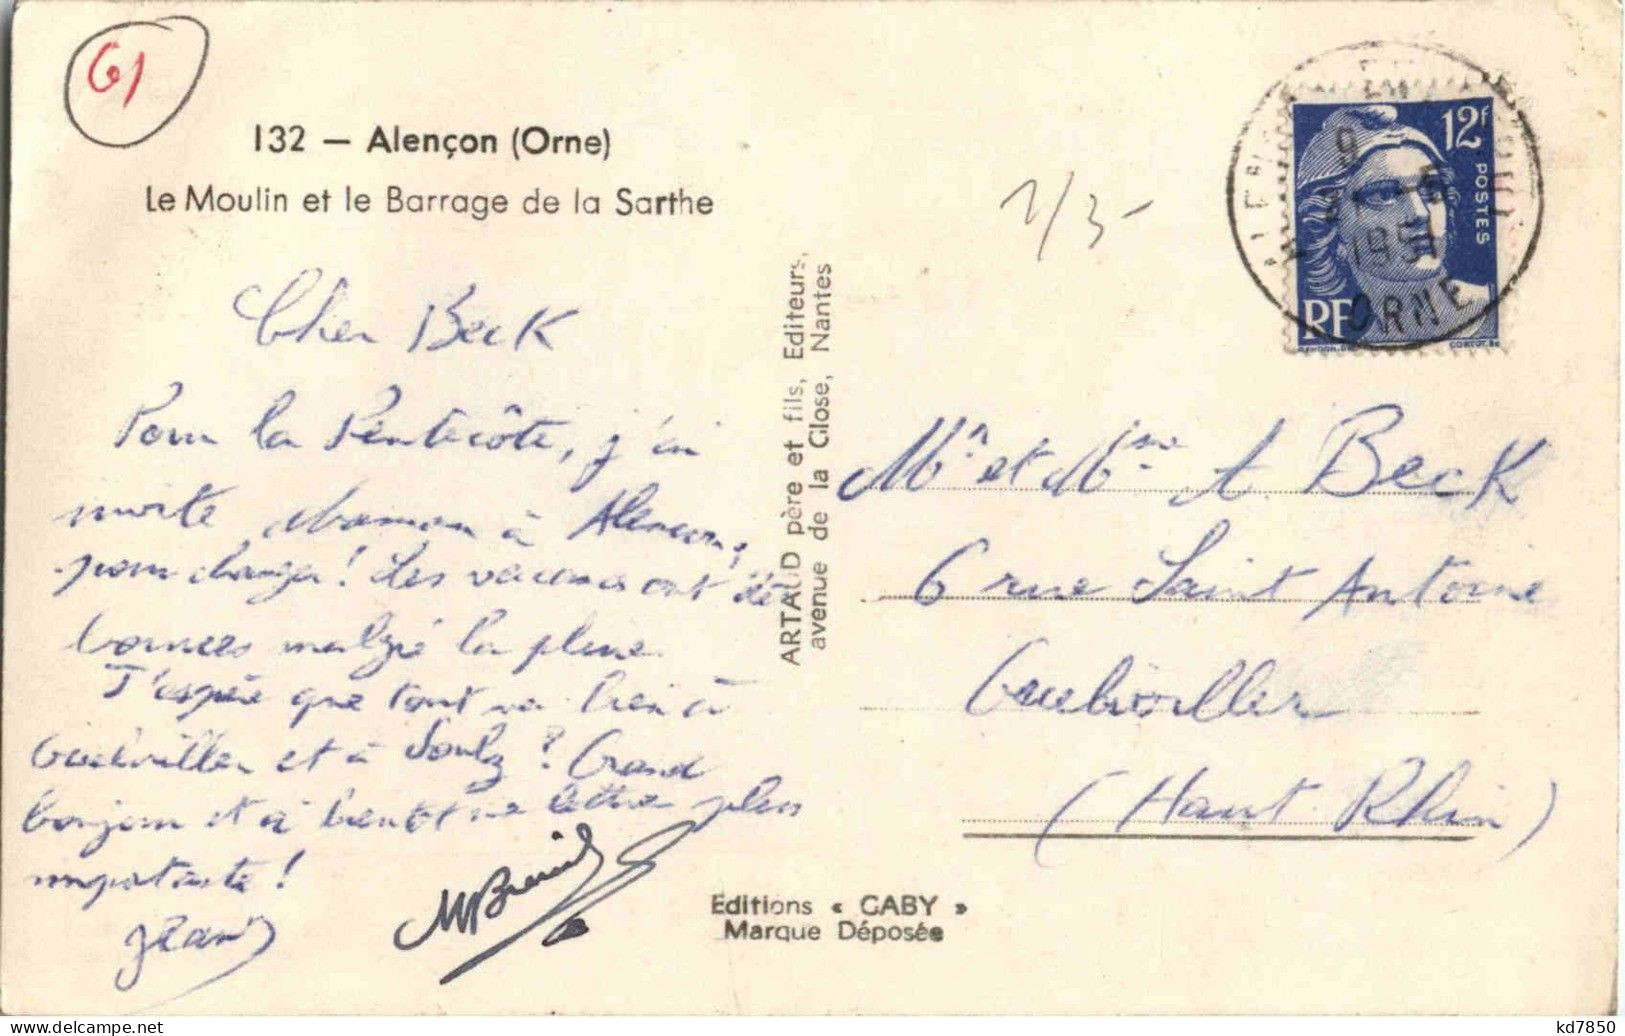 61
132 — Alençon (Orne)
Le Moulin et le Barrage de la Sarthe
1/3-
Cher Beck
Pour la Pentecôte, j'ai
invité Maman à Alençon,
pour changer ! Les vacances ont été
bonnes malgré la pluie.
J'espère que tout va bien à
Guebwiller et à Soultz ? Grand
bonjour et à bientôt une lettre plus
importante !
Jean
ARTAUD père et fils, Editeurs,
avenue de la Close, Nantes
Editions « GABY »
Marque Déposée
12f
POSTES
RF
9
1951
ORNE
Mr et Mme A. Beck
6 rue Saint Antoine
Guebwiller
(Haut Rhin)
kd7850